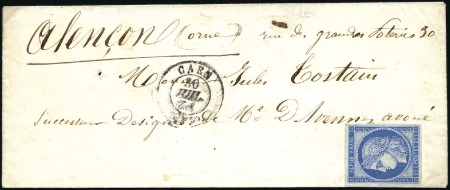 Alençon (Orne) rue des grandes Poteries 30
Jules Tostain
Successeur Designé de Me D'Avennes avoué
CAEN